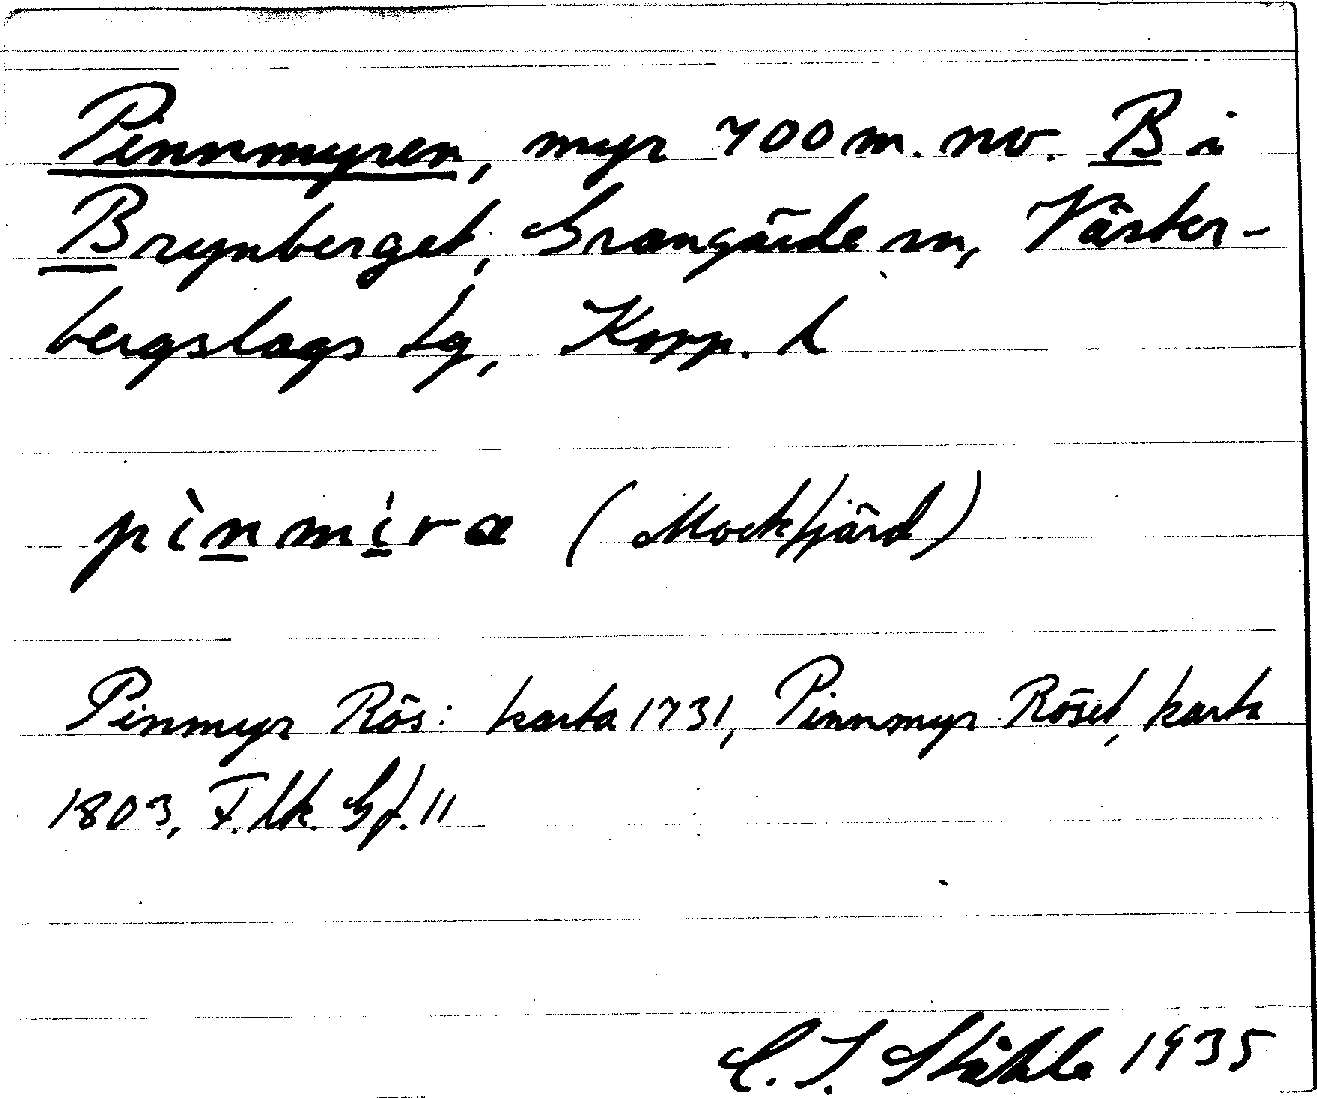 Pinnmyren, myr 700 m. nv. B i
Brynberget, Grangärde sn, Väster-
bergslags tg, Kopp. l
pìnmi̇ra (Mockfjärd)
Pinmyr Rös: karta 1731, Pinnmyr Röset, karta
1803, F. lk. Gf. 11
C. I. Ståhle 1935